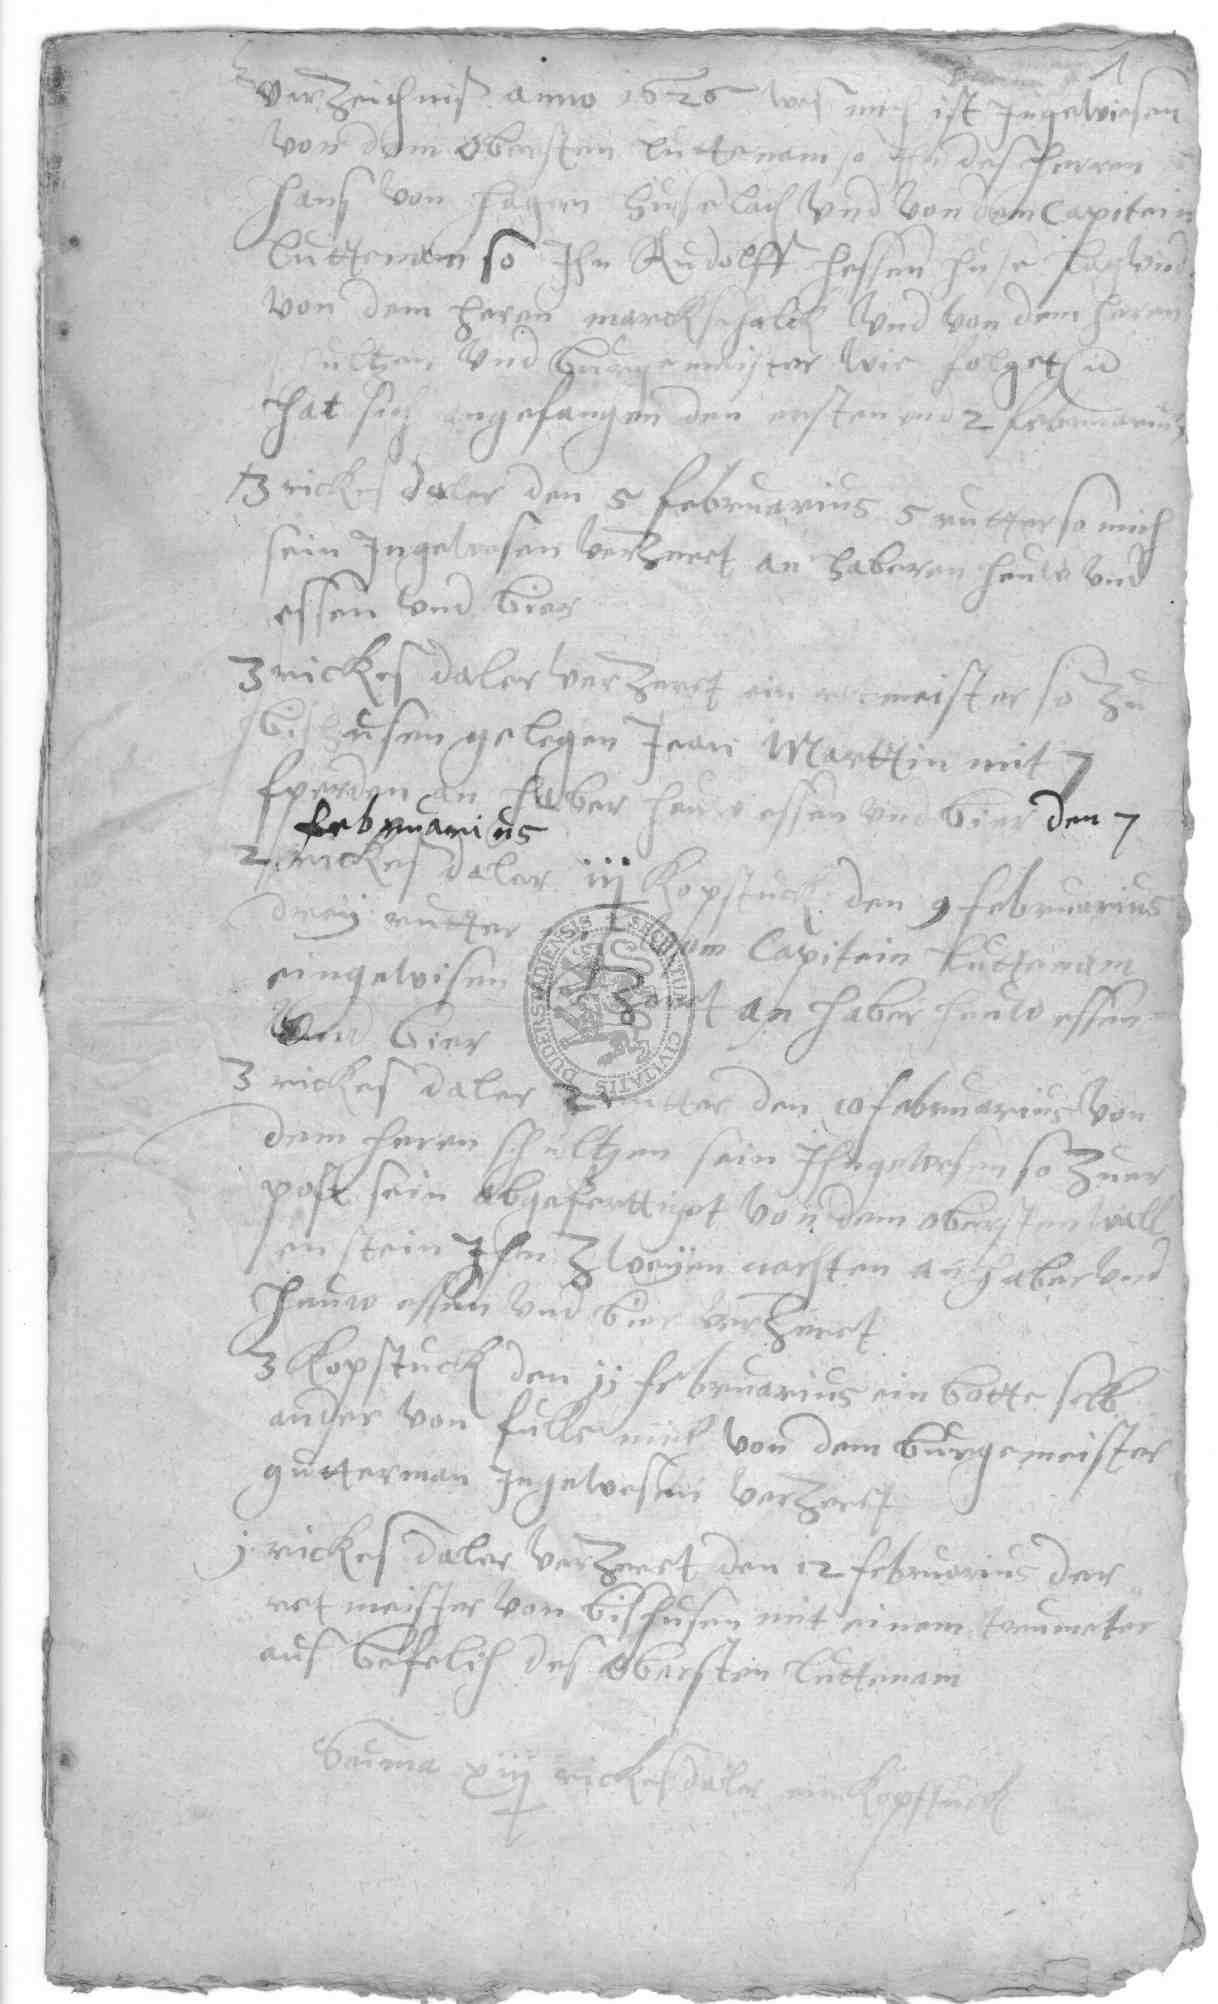 1
VerZeichnis anno 1626 wes mich ist Ingewiesen
von dem Obersten Luttenam so in des herren
Hans von Hagen huse lach Vnd Von dem Capitein
Luttenam so Ihn Rudolff Hessen huse lag Vnd
von dem heren marckschalck Vnd von dem heren
schultzen Vnd burgemeister wie folget
Hat sich angefangen den ersten vnd 2 februarius
3 rickes daler den 5 februarius 5 rutter so mich
sein Ingewesen VerZeert an haberen heuw Vnd
essen Vnd bier
3 rickes daler VerZeert ein retmeister so Zu
bishusen gelegen Jean Marttin mit 7
pferden an haber heuw essen Vnd bier den 7
februarius
2 rickes daler iij Kopstuck den 9 februarius
dreij rutter von dem Capitein Luttenam
eingewisen VerZeert an haber heuw essen
Vnd bier
3 rickes daler 2 rutter den 10 februarius Von
dem heren schultzen sein Ihngewesen so Zuer
post sein abgeferttiget von dem obersten Wall
enstein Ihn Zweijen nachten an haber Vnd
heuw essen Vnd bier VerZeert
3 Kopstuck den 11 februarius ein botte selb
ander von fulle mich von dem burgemeister
gutterman Ingewesen VerZeert
j rickes daler VerZeert den 12 februarius der
ret meister Von bishusen mit einem trumeter
aus befelich des Obersten Luttenam
Summa xiij rickes daler ein Kopstuck
SECRETUM CIVITATIS DUDERSTADIENSIS